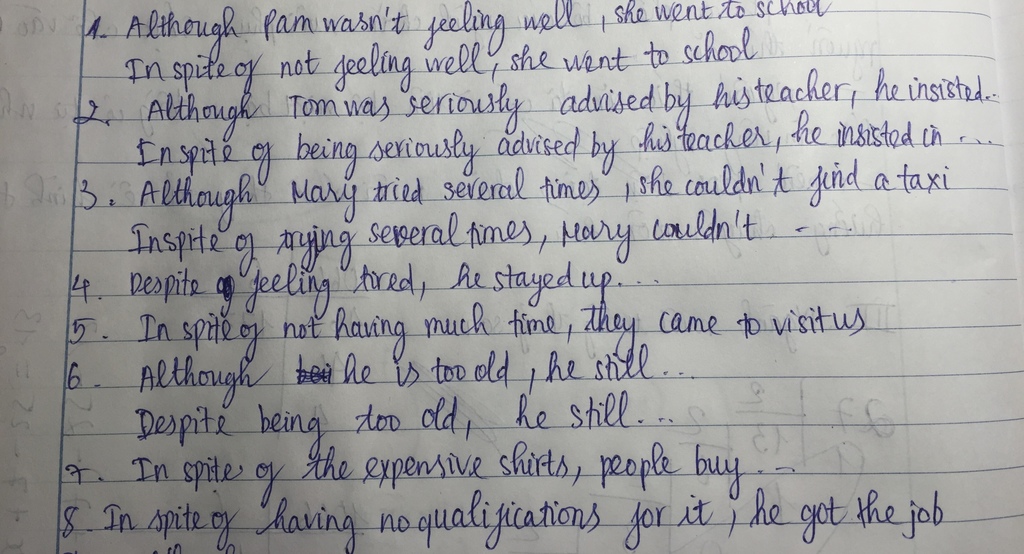 1. Although Pam wasn't feeling well, she went to school
In spite of not feeling well, she went to school
2. Although Tom was seriously advised by his teacher, he insisted...
In spite of being seriously advised by his teacher, he insisted in ....
3. Although Mary tried several times, she couldn't find a taxi
Inspite of trying several times, Mary couldn't - - ...
4. Despite feeling tired, he stayed up....
5. In spite of not having much time, they came to visit us
6. Although he is too old, he still...
Despite being too old, he still....
7. In spite of the expensive shirts, people buy...
8. In spite of having no qualifications for it, he got the job